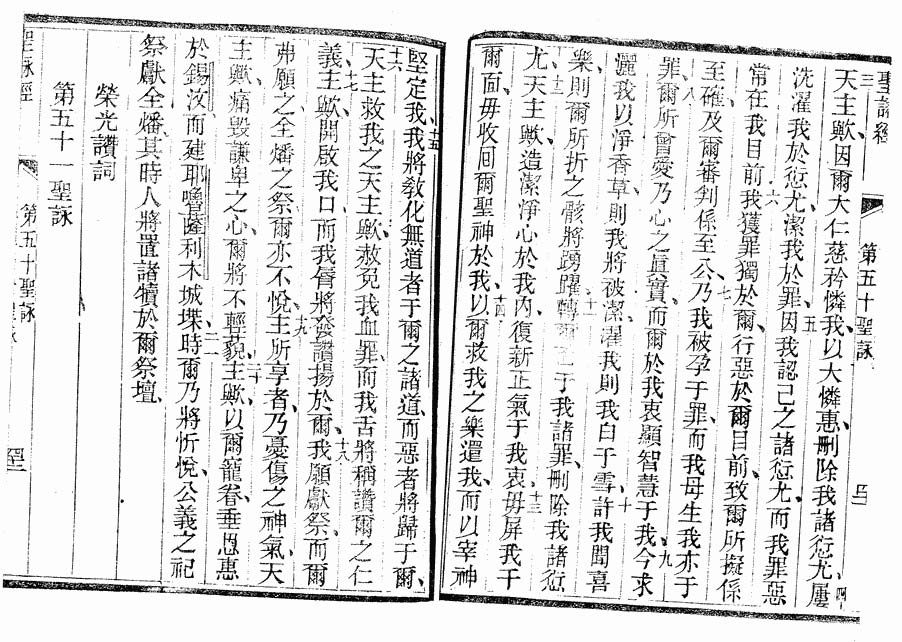 聖詠經
第五十聖詠
三
天主歟、因爾大仁慈矜憐我、以大憐惠、刪除我諸愆尤、屢
四
洗濯我於愆尤、潔我於罪、五因我認己之諸愆尤、而我罪惡
常在我目前、六我獲罪獨於爾、行惡於爾目前、致爾所擬係
至確、及爾審判係至公、七乃我被孕于罪、而我母生我亦于
罪、八爾所曾愛乃心之眞實、而爾於我衷顯智慧于我、九今求
灑我以淨香草、則我將被潔、濯我、則我白于雪、十許我聞喜
樂、則爾所折之骸將踴躍、十一轉爾于我諸罪、刪除我諸愆
尤、十二天主歟、造潔淨心於我內、復新正氣于我衷、十三毋屏我于
爾面、毋收回爾聖神於我、十四以爾救我之樂還我、而以宰神
堅定我、十五我將敎化無道者于爾之諸道、而惡者將歸于爾、
十六天主救我之天主歟、赦免我血罪、而我舌將稱讚爾之仁
義、十七主歟、開啟我口、而我脣將發讚揚於爾、十八我願獻祭、而爾
弗願之、全燔之祭、爾亦不悅、十九主所享者、乃憂傷之神氣、天
主歟、痛毀謙卑之心、爾將不輕藐、二十主歟、以爾寵眷、垂恩惠
於錫汶、而建耶嚕𠎀利木城堞、二一時爾乃將忻悅、公義之祀
祭獻全燔、其時人將置諸犢於爾祭壇、
榮光讚詞
第五十一聖詠
聖詠經
第五十聖詠